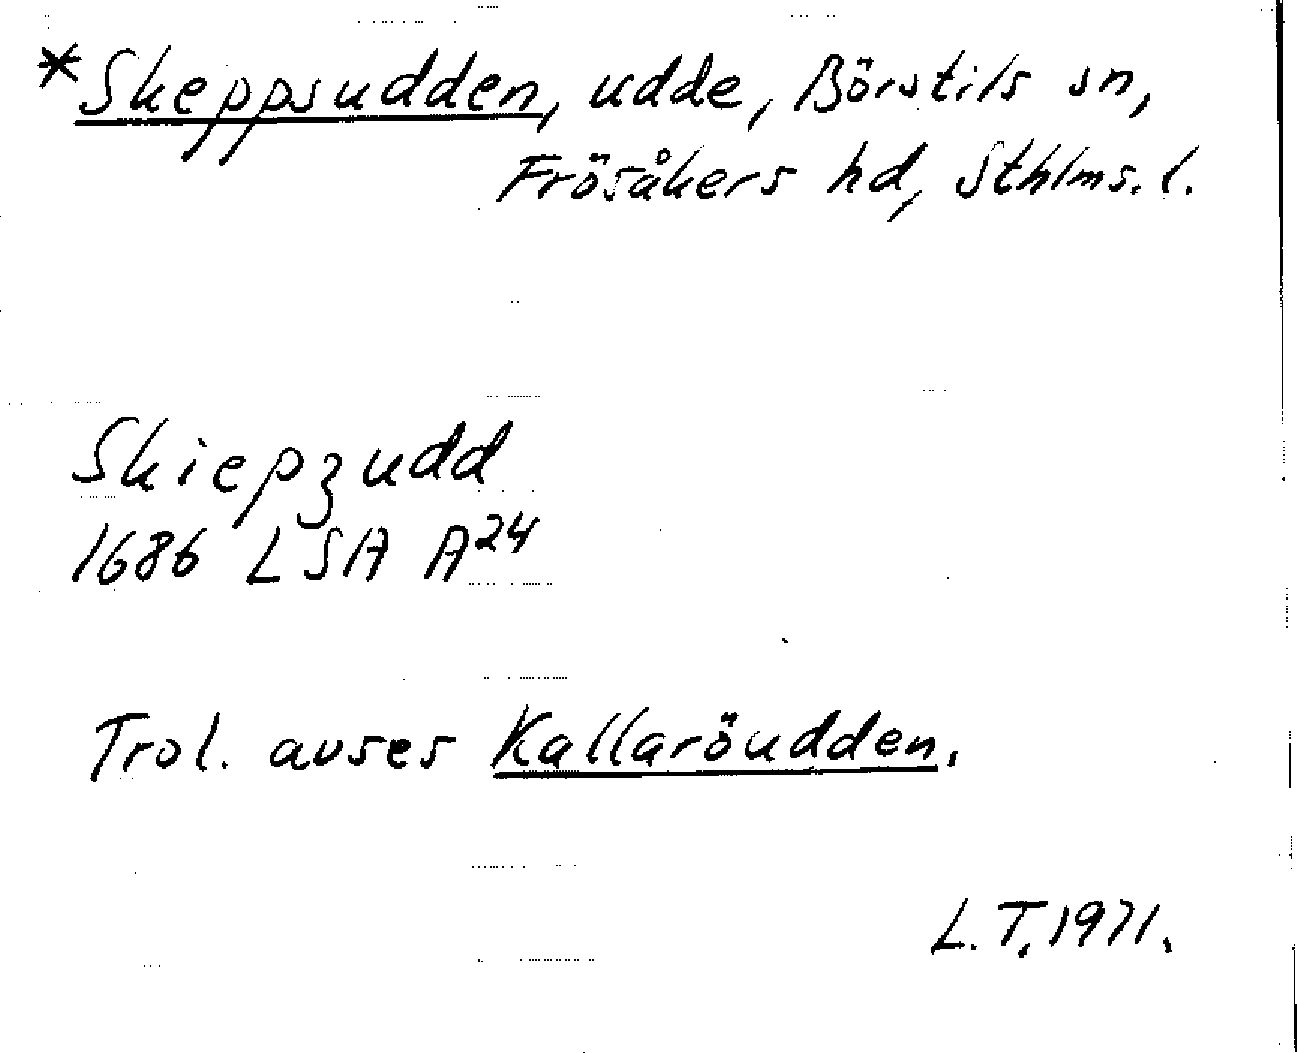 *Skeppsudden, udde, Börstils sn,
Frösåkers hd, Sthlms. l.
Skiepzudd
1686 LSA A24
Trol. avses Kallaröudden.
L. T. 1971.